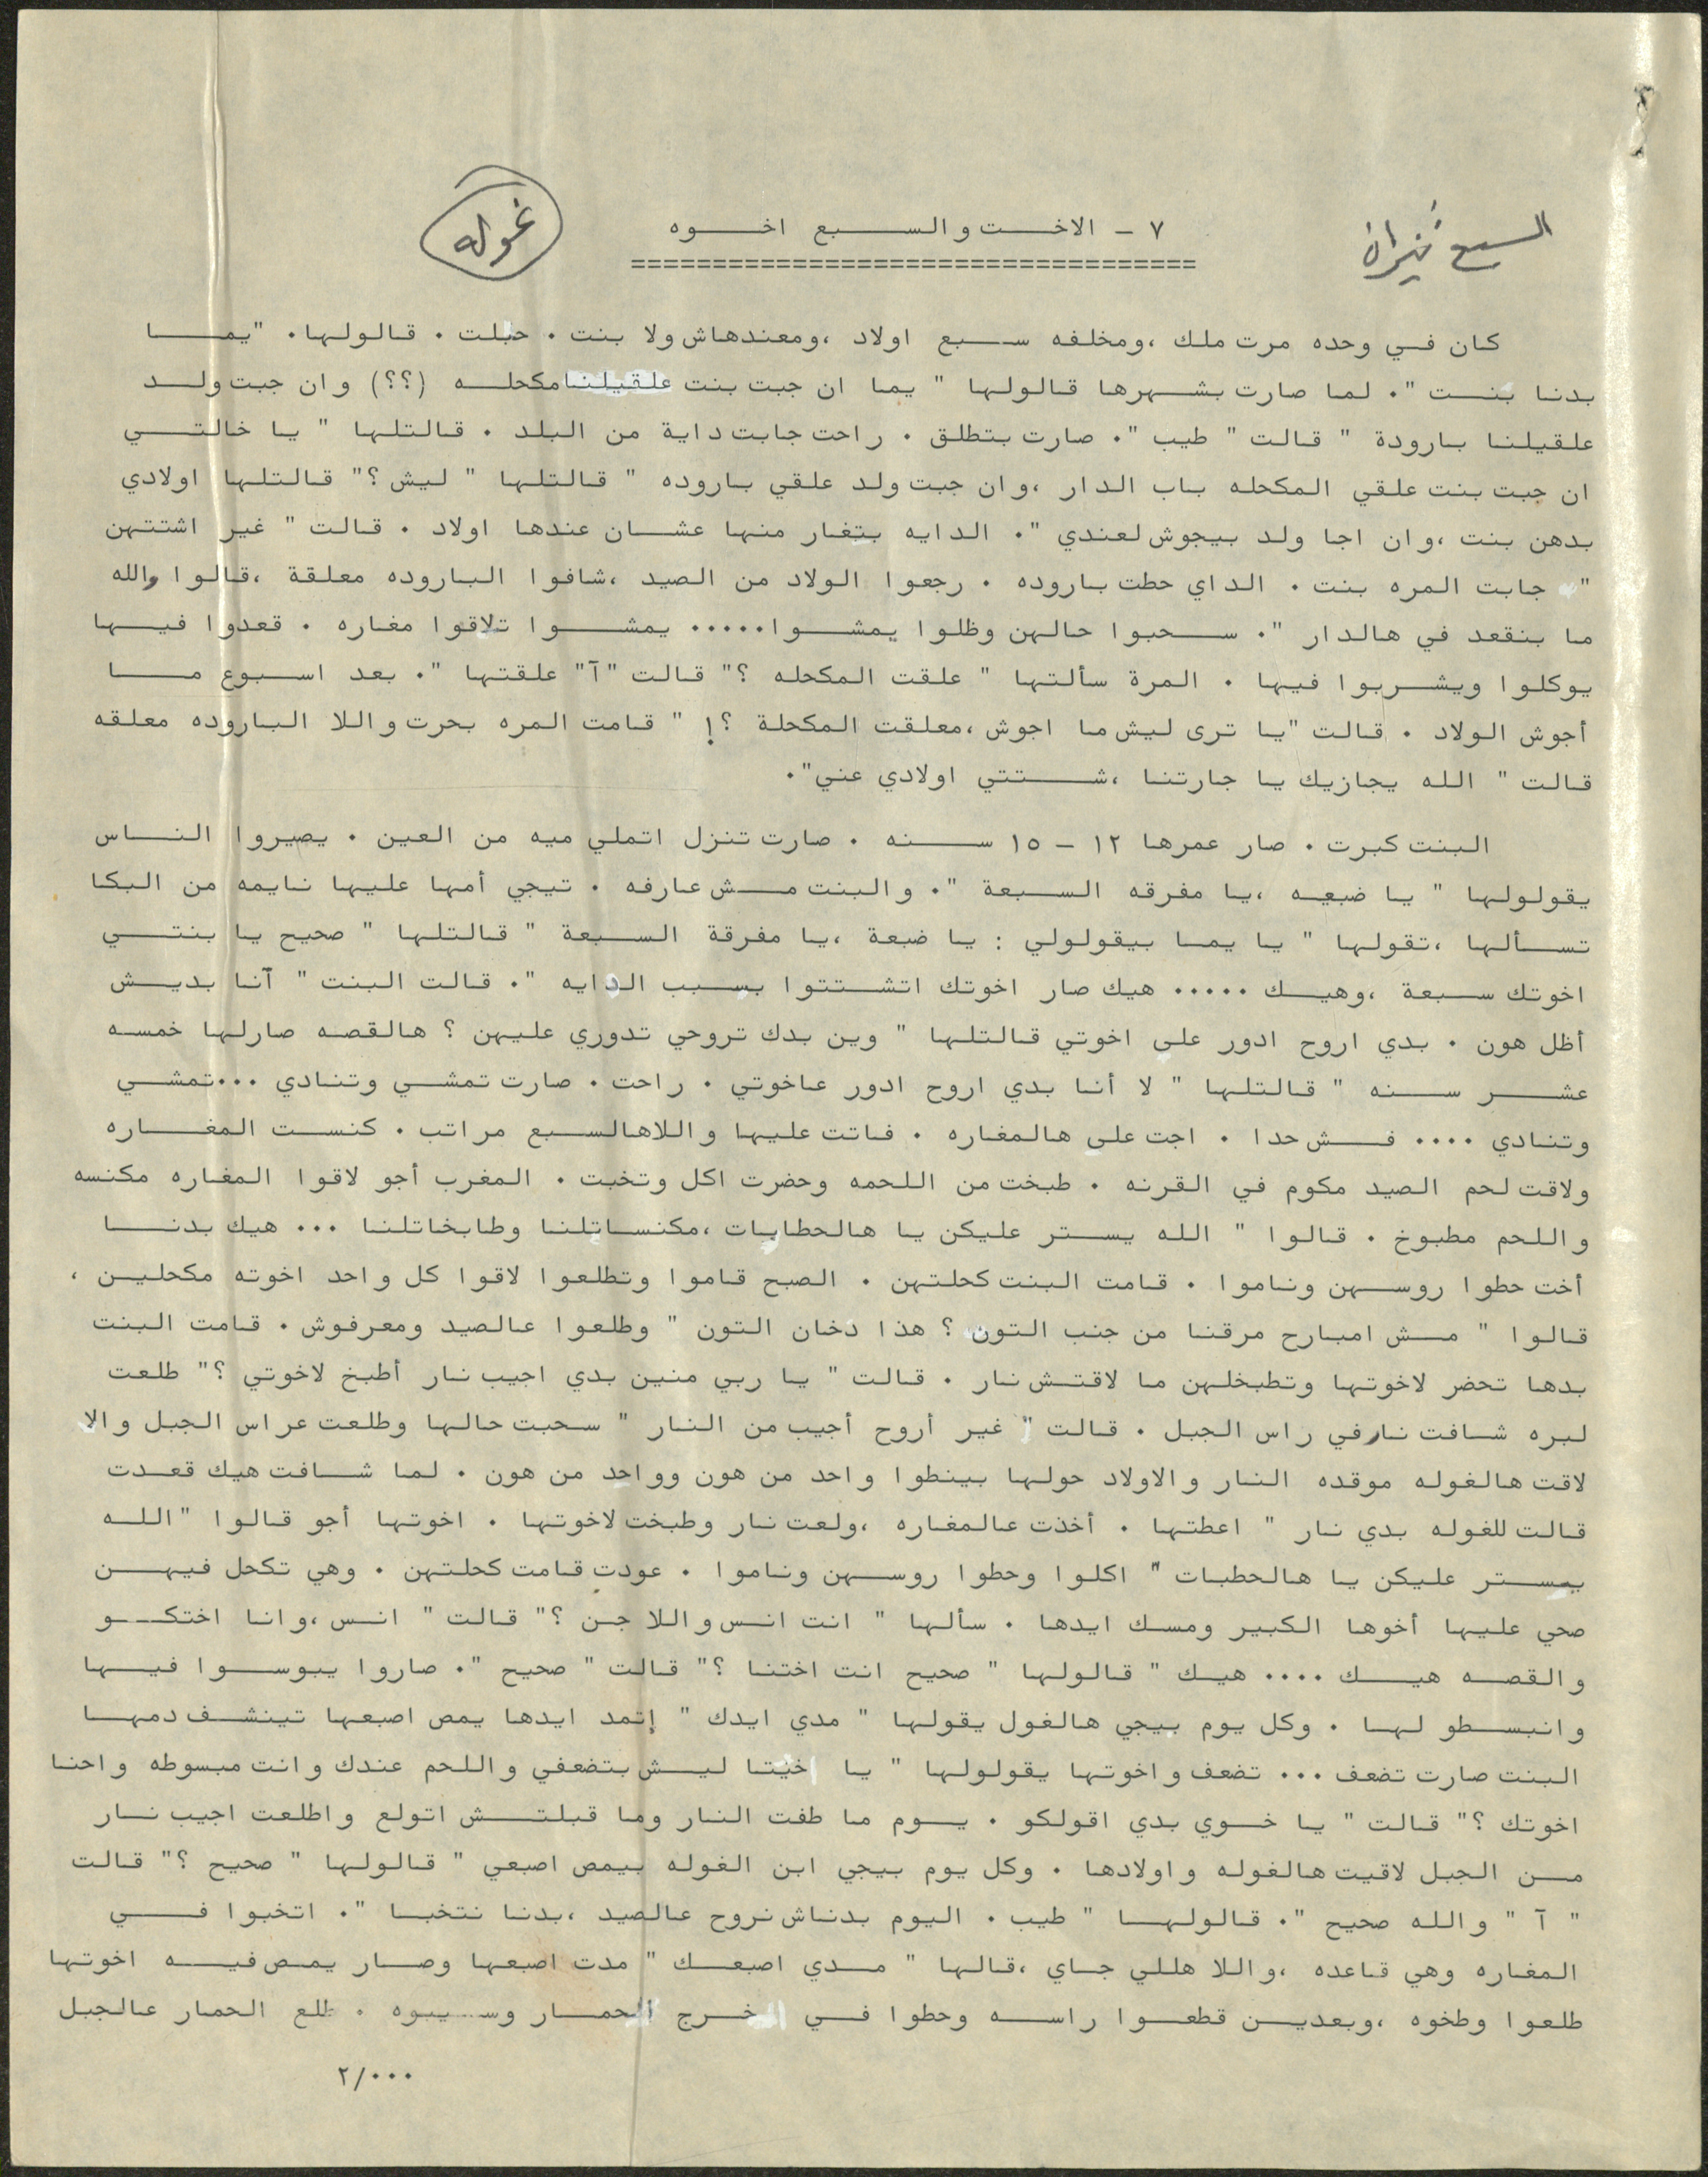 السبع ثيران
٧ - الاخت والسبع اخوه
غوله
كان في وحده مرت ملك ،ومخلفه سبع اولاد ،ومعندهاش ولا بنت . حبلت . قالولها . "يما
بدنا بنت ". لما صارت بشهرها قالولها " يما ان جبت بنت علقيلنا مكحله (؟؟) وان جبت ولد
علقيلنا بارودة " قالت " طيب ". صارت بتطلق . راحت جابت داية من البلد . قالتلها " يا خالتي
ان جبت بنت علقي المكحله باب الدار ،وان جبت ولد علقي باروده " قالتلها " ليش ؟" قالتلها اولادي
بدهن بنت ،وان اجا ولد بيجوش لعندي ". الدايه بتغار منها عشان عندها اولاد . قالت " غير اشتتهن
" جابت المره بنت . الداي حطت باروده . رجعوا الولاد من الصيد ،شافوا الباروده معلقة ،قالوا والله
ما بنقعد في هالدار ". سحبوا حالهن وظلوا يمشوا..... يمشوا تلاقوا مغاره . قعدوا فيها
يوكلوا ويشربوا فيها . المرة سألتها " علقت المكحله ؟" قالت "آ" علقتها ". بعد اسبوع ما
أجوش الولاد . قالت "يا ترى ليش ما اجوش ،معلقت المكحلة ؟! " قامت المره بحرت واللا الباروده معلقه
قالت " الله يجازيك يا جارتنا ،شتتي اولادي عني".
البنت كبرت . صار عمرها ١٢ - ١٥ سنه . صارت تنزل اتملي ميه من العين . يصيروا الناس
يقولولها " يا ضبعه ،يا مفرقه السبعة ". والبنت مش عارفه . تيجي أمها عليها نايمه من البكا
تسألها ،تقولها " يا يما بيقولولي : يا ضبعة ،يا مفرقة السبعة " قالتلها " صحيح يا بنتي
اخوتك سبعة ،وهيك ..... هيك صار اخوتك اتشتتوا بسبب الدايه ". قالت البنت " آنا بديش
أظل هون . بدي اروح ادور على اخوتي قالتلها " وين بدك تروحي تدوري عليهن ؟ هالقصه صارلها خمسه
عشر سنه " قالتلها " لا أنا بدي اروح ادور عاخوتي . راحت . صارت تمشي وتنادي ...تمشي
وتنادي .... فش حدا . اجت على هالمغاره . فاتت عليها واللاهالسبع مراتب . كنست المغاره
ولاقت لحم الصيد مكوم في القرنه . طبخت من اللحمه وحضرت اكل وتخبت . المغرب أجو لاقوا المغاره مكنسه
واللحم مطبوخ . قالوا " الله يستر عليكن يا هالحطابات ،مكنساتلنا وطابخاتلنا ... هيك بدنا
أخت حطوا روسهن وناموا . قامت البنت كحلتهن . الصبح قاموا وتطلعوا لاقوا كل واحد اخوته مكحلين ،
قالوا " مش امبارح مرقنا من جنب التون ؟ هذا دخان التون " وطلعوا عالصيد ومعرفوش . قامت البنت
بدها تحضر لاخوتها وتطبخلهن ما لاقتش نار . قالت " يا ربي منين بدي اجيب نار أطبخ لاخوتي ؟" طلعت
لبره شافت نار في راس الجبل . قالت " غير أروح أجيب من النار " سحبت حالها وطلعت عراس الجبل والا
لاقت هالغوله موقده النار والاولاد حولها بينطوا واحد من هون وواحد من هون . لما شافت هيك قعدت
قالت للغوله بدي نار " اعطتها . أخذت عالمغاره ،ولعت نار وطبخت لاخوتها . اخوتها أجو قالوا "الله
يستر عليكن يا هالحطبات " اكلوا وحطوا روسهن وناموا . عودت قامت كحلتهن . وهي تكحل فيهن
صحي عليها أخوها الكبير ومسك ايدها . سألها " انت انس واللا جن ؟" قالت " انس ،وانا اختكو
والقصه هيك .... هيك " قالولها " صحيح انت اختنا ؟" قالت " صحيح ". صاروا يبوسوا فيها
وانبسطو لها . وكل يوم بيجي هالغول يقولها " مدي ايدك " إتمد ايدها يمص اصبعها تينشف دمها
البنت صارت تضعف ... تضعف واخوتها يقولولها " يا اخيتا ليش بتضعفي واللحم عندك وانت مبسوطه واحنا
اخوتك ؟" قالت " يا خوي بدي اقولكو . يوم ما طفت النار وما قبلتش اتولع واطلعت اجيب نار
من الجبل لاقيت هالغوله واولادها . وكل يوم بيجي ابن الغوله بيمص اصبعي " قالولها " صحيح ؟" قالت
" آ " والله صحيح ". قالولها " طيب . اليوم بدناش نروح عالصيد ،بدنا نتخبا ". اتخبوا في
المغاره وهي قاعده ،واللا هللي جاي ،قالها " مدي اصبعك " مدت اصبعها وصار يمص فيه اخوتها
طلعوا وطخوه ،وبعدين قطعوا راسه وحطوا في الخرج الحمار وسيبوه . طلع الحمار عالجبل
٢/...